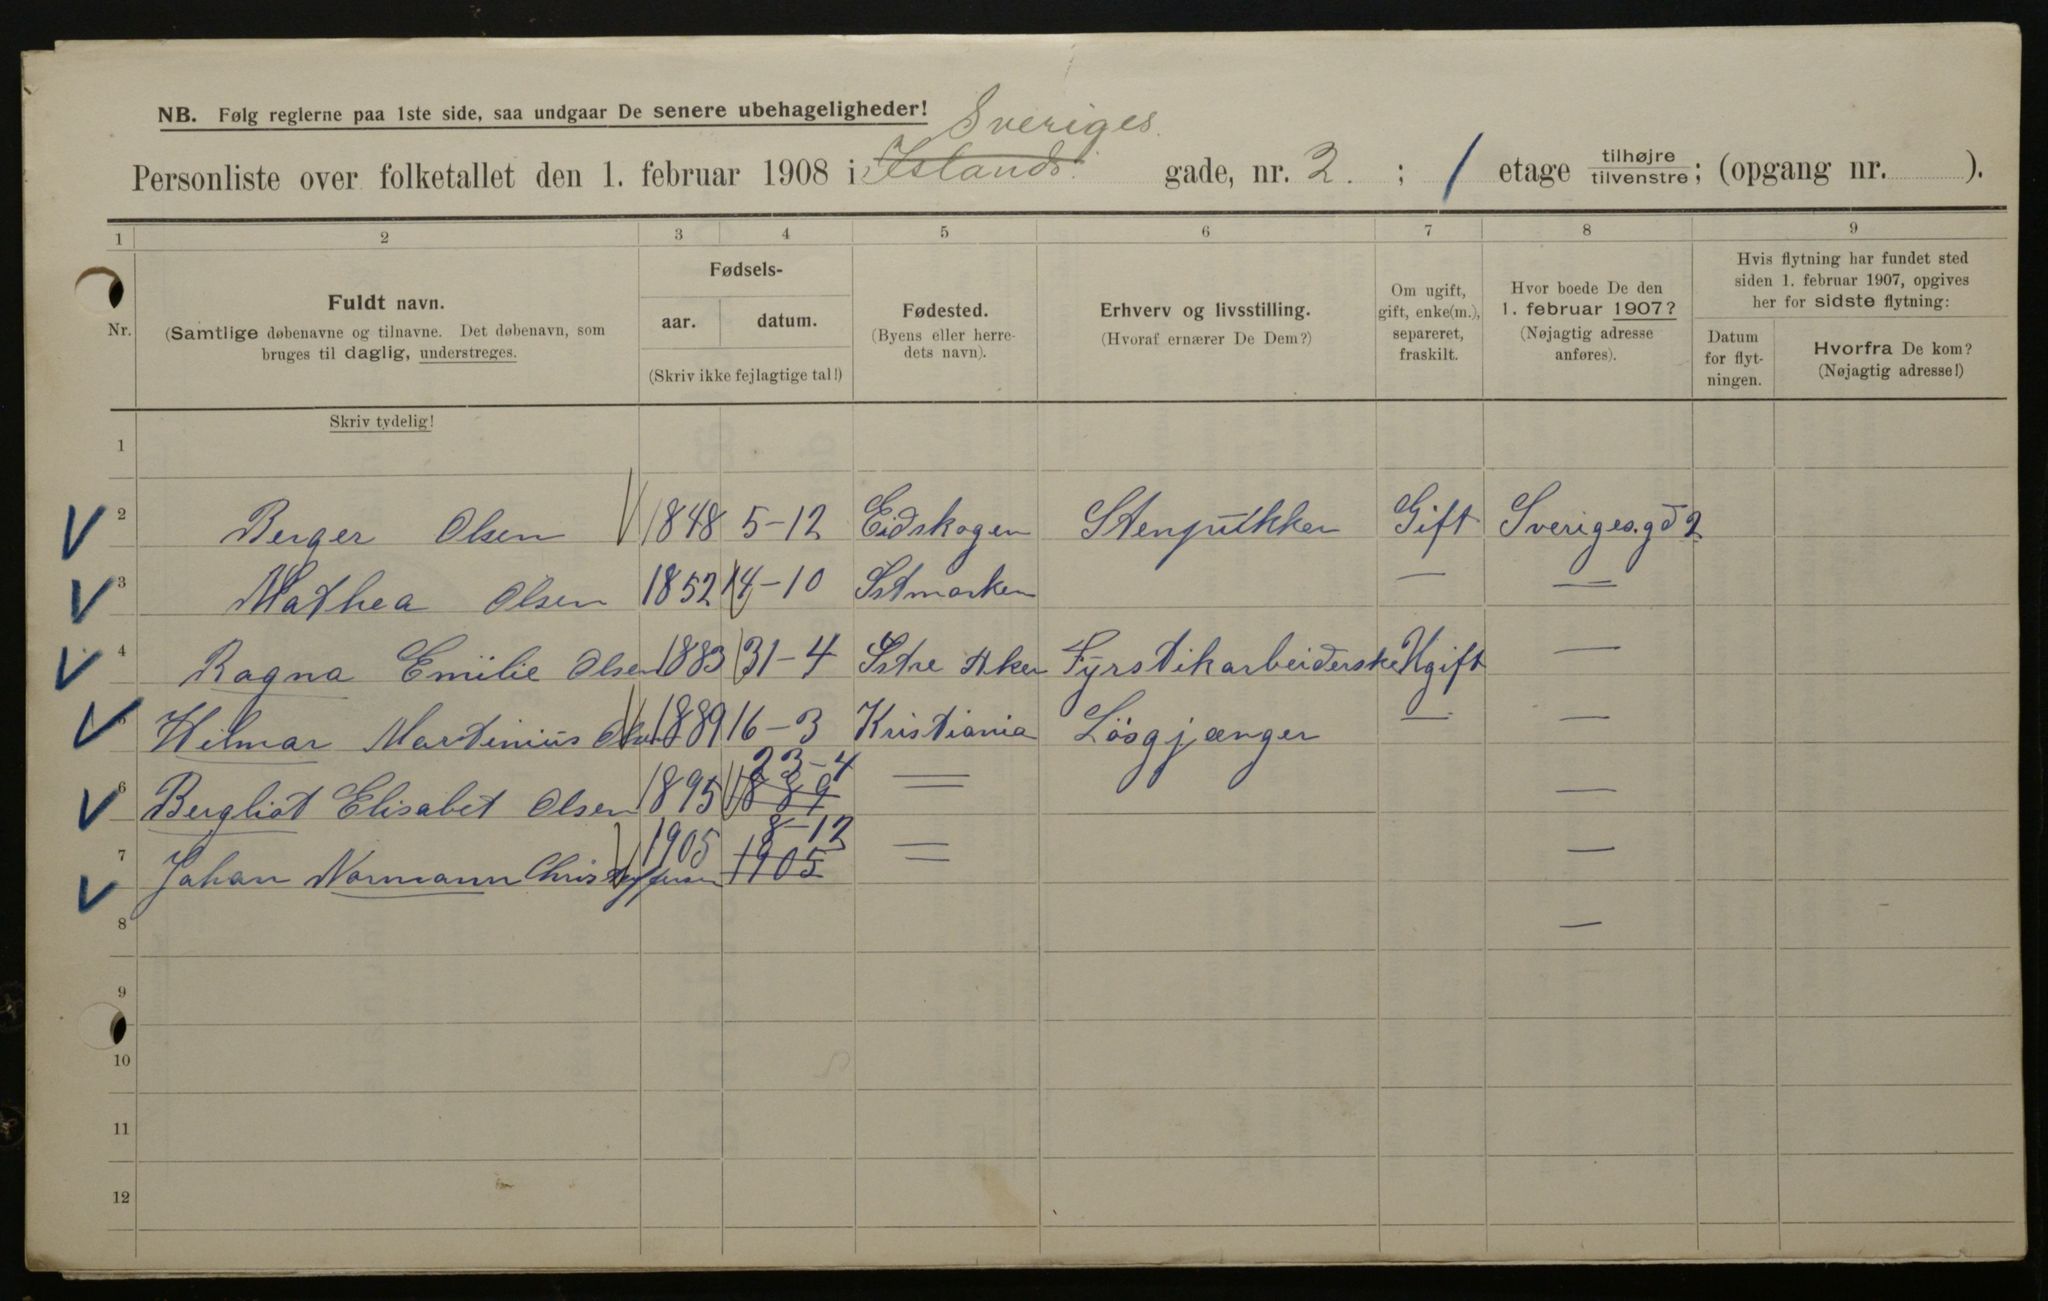 NB. Følg reglerne paa 1ste side, saa undgaar De senere ubehageligheder!
Sveriges
Personliste over folketallet den 1. februar 1908 i Islands gade, nr. 2. ; 1 etage tilhøjre tilvenstre; (opgang nr. ).
1 2 3 4 5 6 7 8 9
Nr.
Fuldt navn.
(Samtlige døbenavne og tilnavne. Det døbenavn, som
bruges til daglig, understreges.
Fødsels-
aar. datum.
(Skriv ikke fejlagtige tal!)
Fødested.
(Byens eller herre-
dets navn).
Erhverv og livsstilling.
(Hvoraf ernærer De Dem?)
Om ugift,
gift, enke(m.),
separeret,
fraskilt.
Hvor boede De den
1. februar 1907?
(Nøjagtig adresse
anføres).
Hvis flytning har fundet sted
siden 1. februar 1907, opgives
her for sidste flytning:
Datum
for flyt-
ningen.
Hvorfra De kom?
(Nøjagtig adresse!)
Skriv tydelig!
1
2 Berger Olsen 1848 5-12 Eidskogen Gift Sveriges.gd 2
3 Mathea Olsen 1852 14-10 — —
4 Ragna Emilie Olsen 1883 31-4 Fyrstikarbeiderske Ugift —
5 Hilmar Martinius Olsen 1889 16-3 Kristiania Løsgjænger — —
23-4
6 Bergliot Elisabet Olsen 1895 1889 — —
8-12
7 Johan Normann Christoffersen 1905 1905 — —
8 —
9
10
11
12